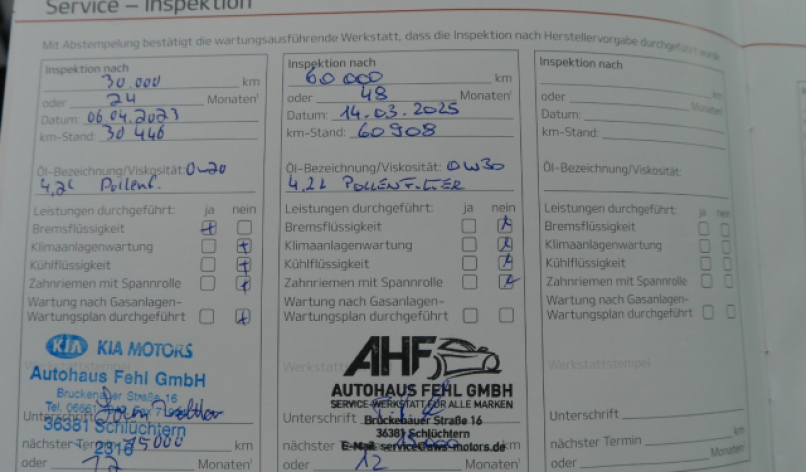 Service – Inspektion
Mit Abstempelung bestätigt die wartungsausführende Werkstatt, dass die Inspektion nach Herstellervorgabe durchgeführt wurde.
Inspektion nach
30.000 km
oder 24 Monaten¹
Datum: 06.04.2023
km-Stand: 30 446
Öl-Bezeichnung/Viskosität: 0w20
4,2L Pollenf.
Leistungen durchgeführt: ja nein
Bremsflüssigkeit
Klimaanlagenwartung
Kühlflüssigkeit
Zahnriemen mit Spannrolle
Wartung nach Gasanlagen-
Wartungsplan durchgeführt
KIA KIA MOTORS
Autohaus Fehl GmbH
Bruckenauer Straße 16
Tel. 06661
Unterschrift
36381 Schlüchtern
2316
nächster Termin 75000 km
oder 12 Monaten¹
Inspektion nach
60000 km
oder 48 Monaten¹
Datum: 14.03.2025
km-Stand: 60908
Öl-Bezeichnung/Viskosität: 0W30
4,2L POLLENFILTER
Leistungen durchgeführt: ja nein
Bremsflüssigkeit
Klimaanlagenwartung
Kühlflüssigkeit
Zahnriemen mit Spannrolle
Wartung nach Gasanlagen-
Wartungsplan durchgeführt
AHF
AUTOHAUS FEHL GMBH
SERVICE-WERKSTATT FÜR ALLE MARKEN
Unterschrift Brückenauer Straße 16
36381 Schlüchtern
nächster E-Mail: service@aws-motors.de km
oder 12 Monaten¹
Inspektion nach
km
oder Monaten¹
Datum:
km-Stand:
Öl-Bezeichnung/Viskosität:
Leistungen durchgeführt: ja nein
Bremsflüssigkeit
Klimaanlagenwartung
Kühlflüssigkeit
Zahnriemen mit Spannrolle
Wartung nach Gasanlagen-
Wartungsplan durchgeführt
Werkstattstempel
Unterschrift
nächster Termin km
oder Monaten¹